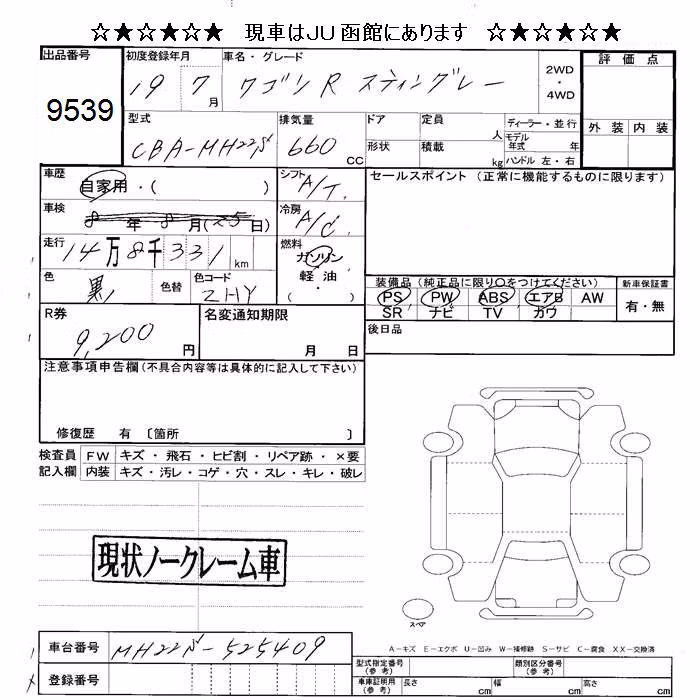 ☆★☆★☆★ 現車はJU函館にあります ☆★☆★☆★
出品番号 9539
初度登録年月 19 7月
車名・グレード ワゴンR スティングレー
2WD・4WD
評価点
外装 内装
型式 CBA-MH22S
排気量 660 CC
ドア 形状
定員 人
積載 kg
ディーラー・並行
モデル年式 年
ハンドル 左・右
車歴 自家用・( )
シフト A/T
セールスポイント (正常に機能するものに限ります)
車検 年 月( 日)
冷房 A/C
走行 14万8千331km
燃料 ガソリン 軽油・( )
色 黒 色替
色コード ZHY
装備品 (純正品に限り〇をつけてください)
PS PW ABS エアB AW
SR ナビ TV カワ
新車保証書 有・無
R券 9,200円
名変通知期限 月 日
後日品
注意事項申告欄 (不具合内容等は具体的に記入して下さい)
修復歴 有 〔箇所 〕
検査員記入欄
FW キズ・飛石・ヒビ割・リペア跡・×要
内装 キズ・汚レ・コゲ・穴・スレ・キレ・破レ
現状ノークレーム車
スペア
A−キズ E−エクボ U−凹み W−補修跡 S−サビ C−腐食 XX−交換済
車台番号 MH22S-525409
登録番号
型式指定番号(参考)
類別区分番号(参考)
車庫証明用(参考) 長さ cm 幅 cm 高さ cm